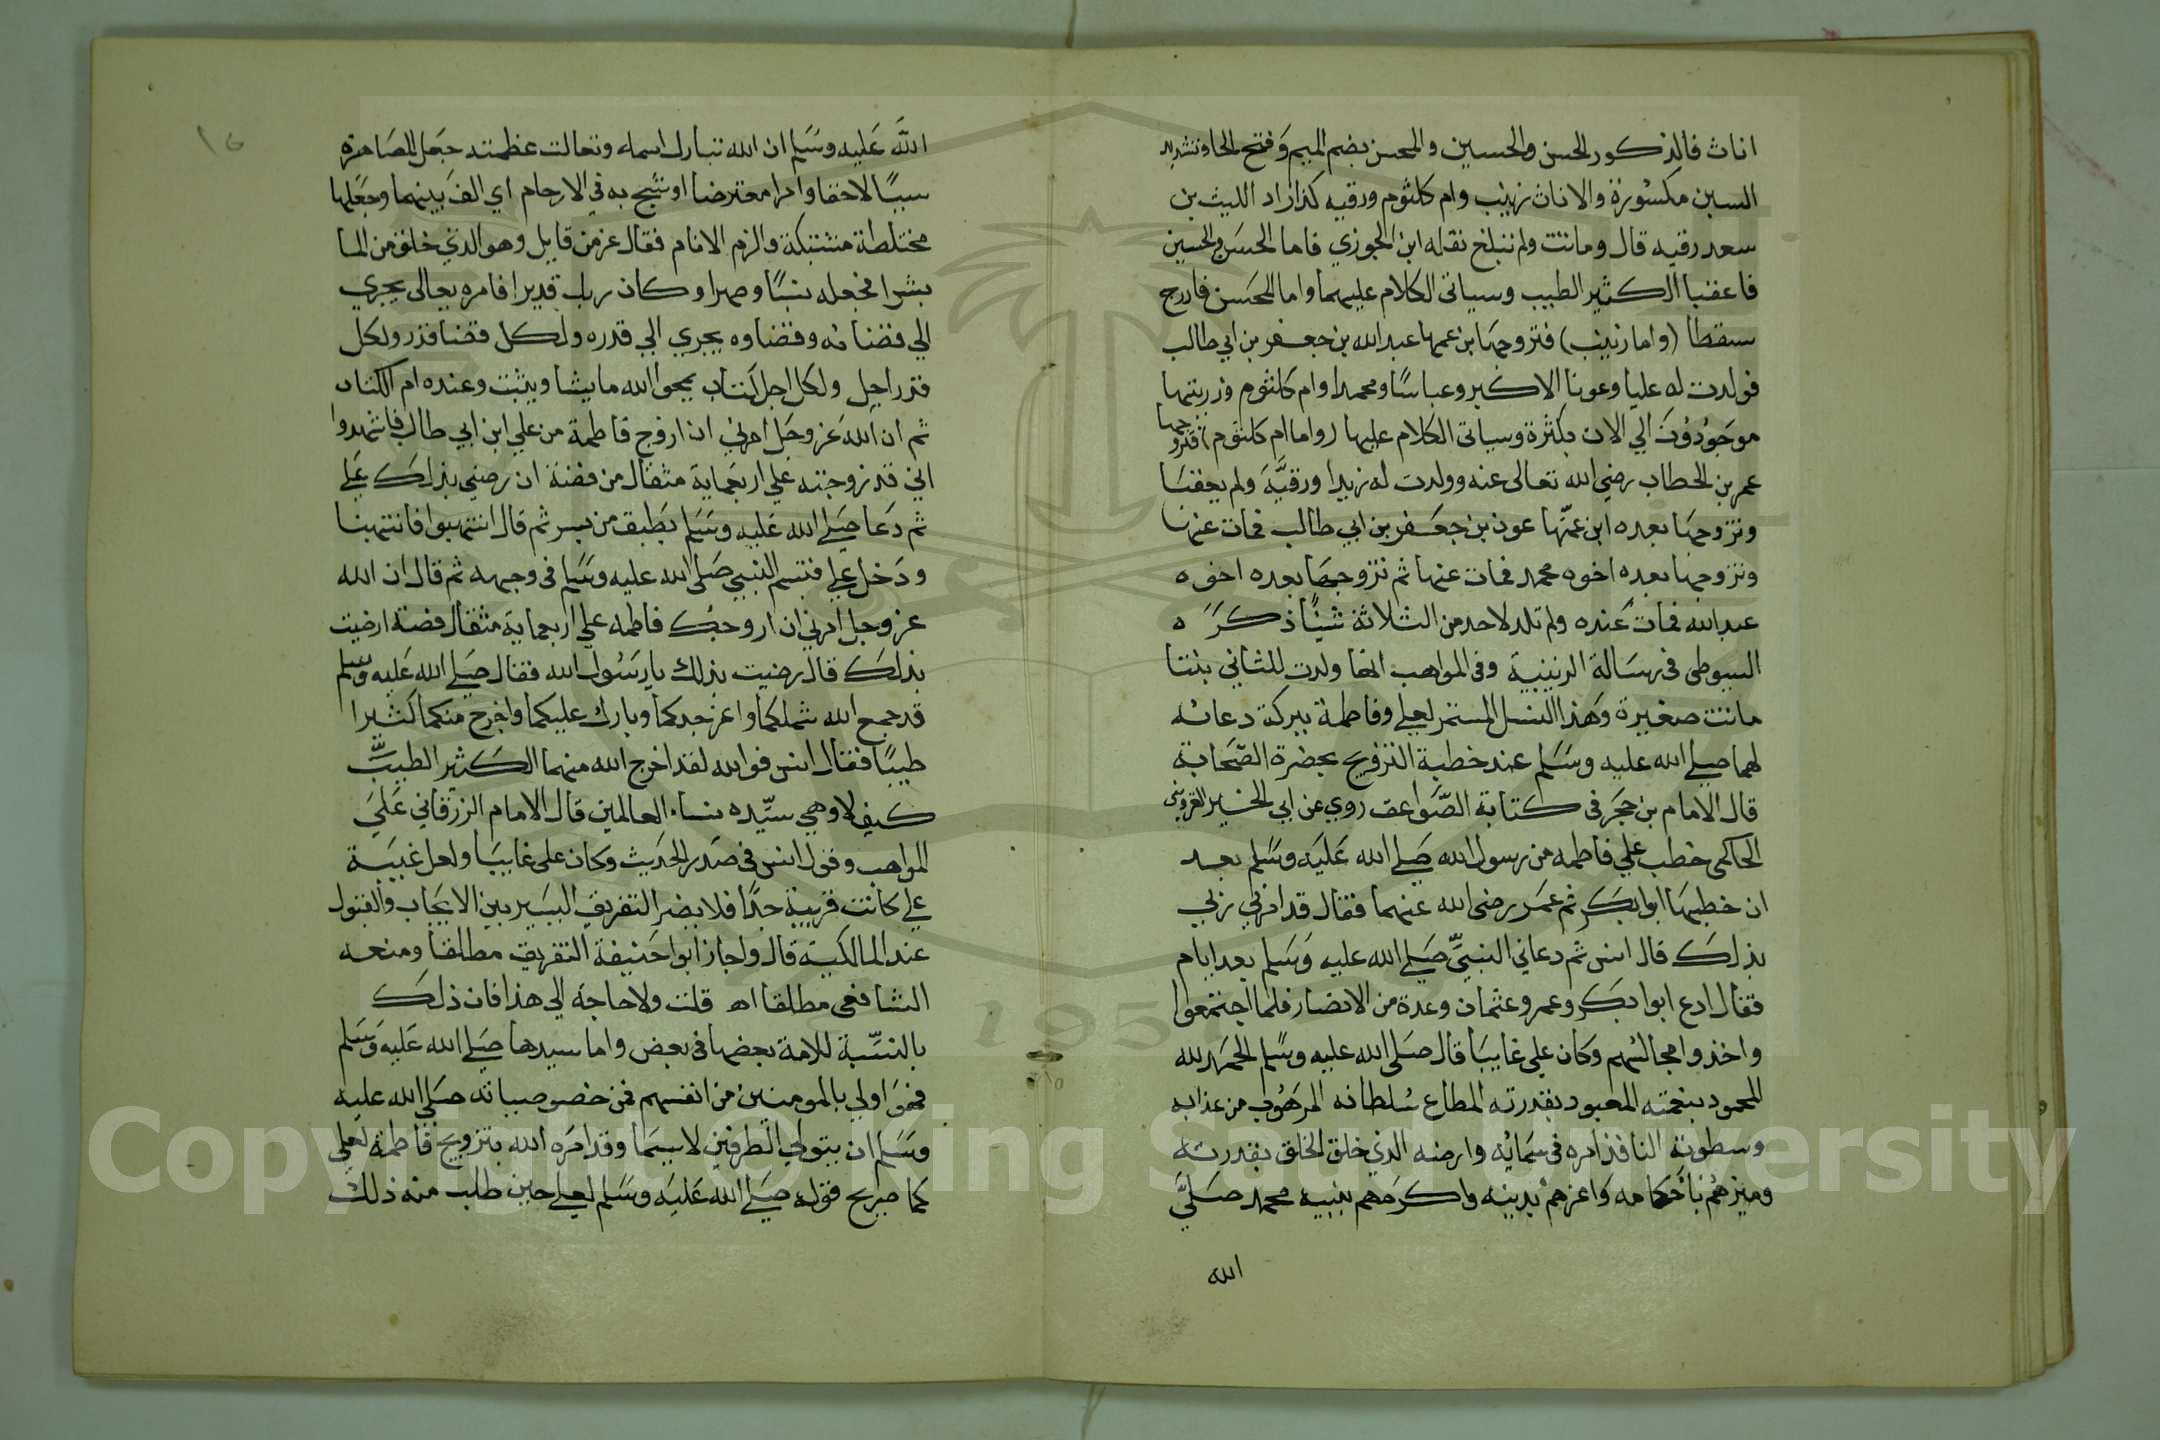 اناث فالذكور الحسن والحسين والمحسن بضم الميم وفتح الحا وتشديد
السين مكسورة والاناث زينب وام كلثوم ورقيه كذا زاد الليث بن
سعد رقيه قال وماتت ولم تبلغ نقله ابن الجوزي فاما الحسن والحسين
فاعقبا الكثير الطيب وسياتى الكلام عليهما واما المحسن فادرج
سقطا (واما زينب) فتزوجها ابن عمها عبد الله بن جعفر بن ابي طالب
فولدت له عليا وعونا الاكبر وعباسًا ومحمدا وام كلثوم وذريتها
موجودون الي الان بكثرة وسياتى الكلام عليها (واما ام كلثوم) فتزوجها
عمر بن الخطاب رضي الله تعالى عنه وولدت له زيدا ورقيَّة ولم يعقبا
وتزوجها بعده ابن عمّها عون بن جعفر بن ابي طالب فمات عنها
وتزوجها بعده اخوه محمد فمات عنها ثم تزوجها بعده اخوه
عبد الله فماتت عنده ولم تلد لاحد من الثلاثة شيًا ذكره
السيوطى فى رسالة الزينبية وفى المواهب انها ولدت للثاني بنتا
ماتت صغيرة وهذا النسل المستمر لعلي وفاطمة ببركة دعائه
لهما صلي الله عليه وسلم عند خطبة التزويج بحضرة الصّحابة
قال الامام بن حجر فى كتابة الصّواعق روي عن ابي الخير القزويني
الحاكمى خطب علي فاطمه من رسول الله صلي الله عليه وسلم بعد
ان خطبها ابوا بكر ثم عمر رضى الله عنهما فقال قد امرني ربي
بذلك قال انس ثم دعاني النبيّ صلي الله عليه وسلم بعد ايام
فقال ادع ابوا بكر وعمر وعثمان وعدة من الانصار فلما اجتمعوا
واخذوا مجالسهم وكان علي غايبًا قال صلى الله عليه وسلم الحمد لله
المحمود بنعمته المعبود بقدرته المطاع سلطانه المرهوب من عذابه
وسطوته النافذ امره فى سمائه وارضه الذي خلق الخلق بقدرته
وميزهم باحكامه واعزهم بدينه واكرمهم بنبيه محمد صليَّ
الله
١٥
الله عليه وسلم ان الله تبارك اسماء وتعالت عظمته جعل المصاهرة
سببًا لاحقا وامرا مفترضا اوشج به في الارحام اي الف بينهما وجعلها
مختلطة مشتبكة والزم الانام فقال عز من قايل وهو الذي خلق من الما
بشرا فجعله نسبًا وصهرا وكان ربك قديرا فامره تعالى يجري
الي قضائه وقضاوه يجري الي قدره ولكل قضا قدر ولكل
قدر اجل ولكل اجل كتاب يمحوا الله ما يشا ويثبت وعنده ام الكتاب
ثم ان الله عز وجل امرني ان ازوج فاطمة من علي ابن ابي طالب فاشهدوا
اني قد زوجته علي اربعماية مثقال من فضة ان رضي بذلك علي
ثم دعا صلي الله عليه وسلم بطبق من بسر ثم قال انتهبوا فانتهبنا
ودخل علي فتبسم النبي صلى الله عليه وسلم فى وجهه ثم قال ان الله
عز وجل امرني ان ازوجك فاطمه علي اربعماية مثقال فضة ارضيت
بذلك قال رضيت بذلك يا رسول الله فقال صلي الله عليه وسلم
قد جمع الله شملكما واعز جدكما وبارك عليكما واخرج منكما كثيرا
طيبًا فقال انس فوالله لقد اخرج الله منهما الكثير الطيبّ
كيف لا وهي سيّده نساء العالمين قال الامام الزرقاني علي
المواهب وقول انس فى صدر الحديث وكان على غايبًا ولعل غيبة
علي كانت قريبة جدًا فلا يضر التفريق اليسير بين الايجاب والقبول
عند المالكية قال واجاز ابوا حنيفة التفريق مطلقا ومنعه
الشافعى مطلقا اه قلت ولا حاجة الي هذا فان ذلك
بالنسّبة للامة بعضها فى بعض واما سيدها صلي الله عليه وسلم
فهو اولي بالمومنين من انفسهم فمن خصوصياته صلي الله عليه
وسلم ان يتولي الطرفين لا سيما وقد امره الله بتزويج فاطمة لعلي
كما صريح قوله صلي الله عليه وسلم لعلي حين طلب منه ذلك
Copyright © King Saud University
195